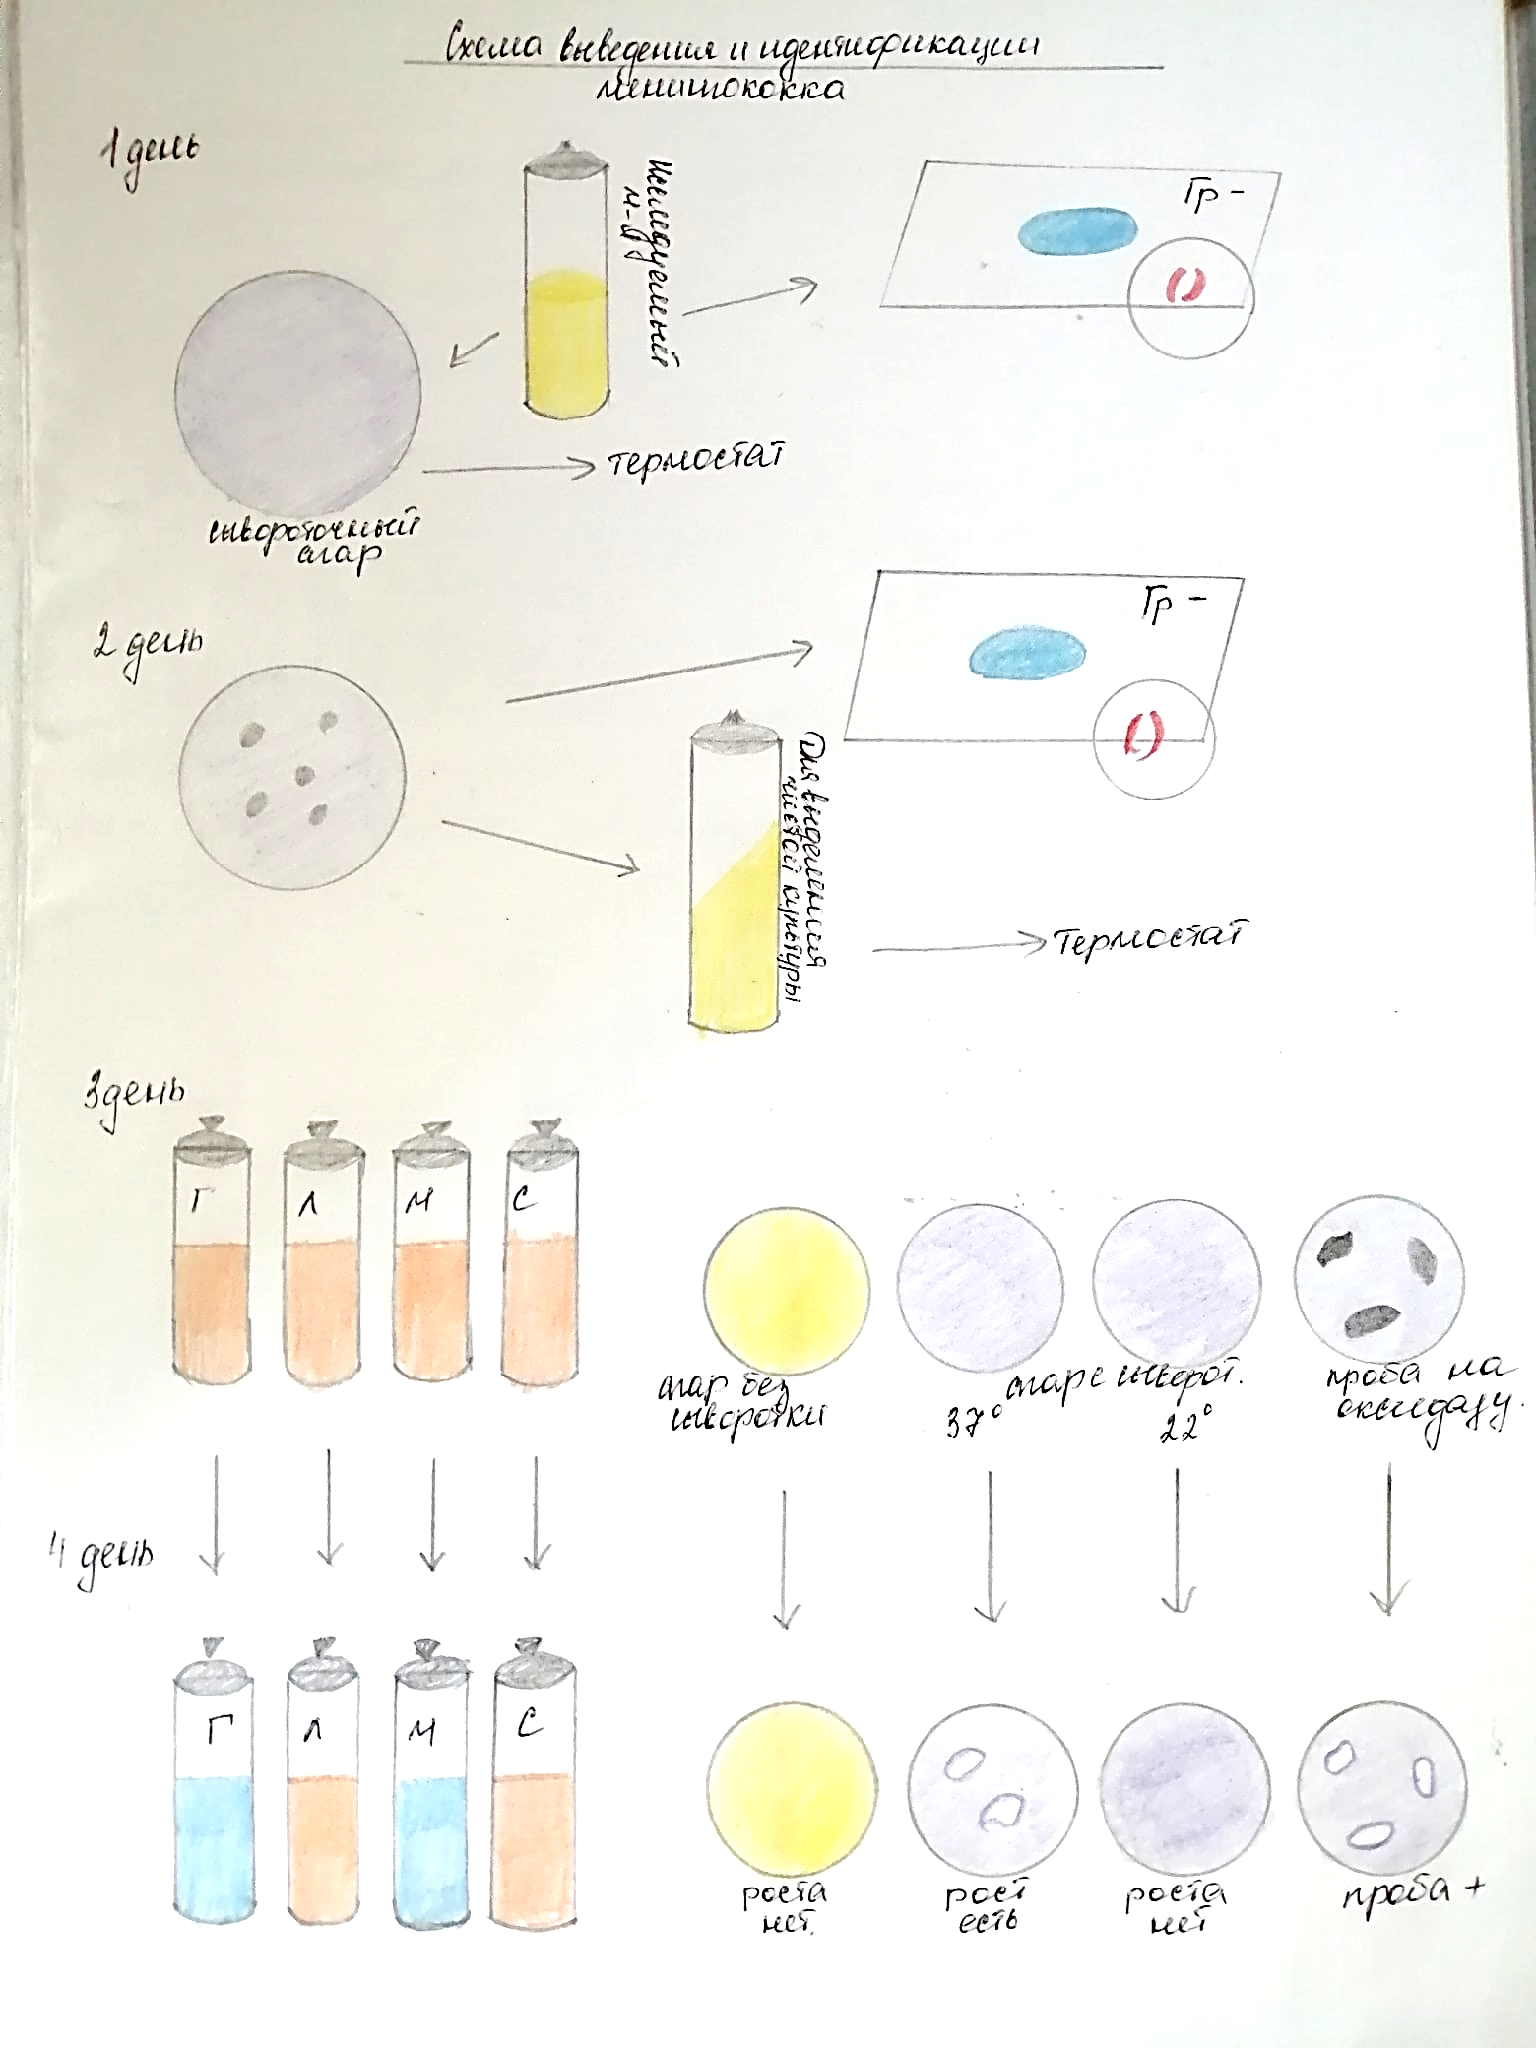 Схема выведения и идентификации
менингококка
1 день
Исследуемый
м-л
Гр -
термостат
сывороточный
агар
2 день
Гр -
Для выделения
чистой культуры
термостат
3 день
Г
Л
М
С
агар без
сыворотки
агар с сыворот.
37°
22°
проба на
оксидазу.
4 день
Г
Л
М
С
роста
нет.
рост
есть
роста
нет
проба +